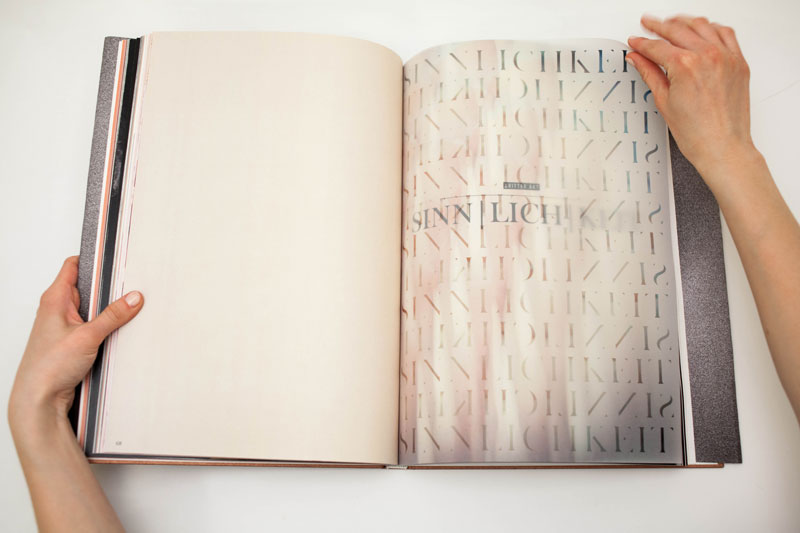 SINNLICHKEIT
SINNLICHKEIT
SINNLICHKEIT
SINNLICHKEIT
SINNLICHKEIT
SINN|LICH|KEIT
SINNLICHKEIT
SINNLICHKEIT
SINNLICHKEIT
SINNLICHKEIT
SINNLICHKEIT
SINNLICHKEIT
SINNLICHKEIT